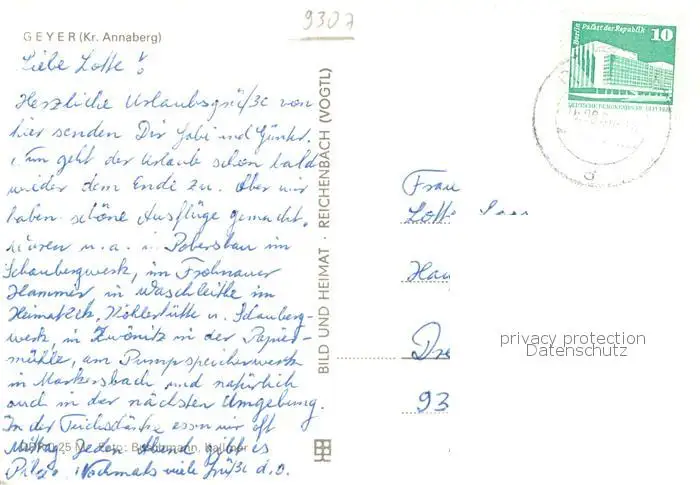 9307
GEYER (Kr. Annaberg)
Liebe Lotte!
Herzliche Urlaubsgrüße von
hier senden Dir Gabi und Günter.
Nun geht der Urlaub schon bald
wieder dem Ende zu. Aber wir
haben schöne Ausflüge gemacht.
Waren u.a. in Pobershau im
Schaubergwerk, im Frohnauer
Hammer in Waschleithe im
Heimateck, Köhlerhütte u. Schauberg-
werk, in Zwönitz in der Papier-
mühle, am Pumpspeicherwerk
in Markersbach und natürlich
auch in der nächsten Umgebung.
In der Teichschänke essen wir oft
Mittag. Jeden Abend gibt es
Nochmals viele Grüße d.O.
BILD UND HEIMAT · REICHENBACH (VOGTL)
Berlin Palast der Republik
10
DEUTSCHE DEMOKRATISCHE REPUBLIK
Frau
Lott
Hau
Dre
93
privacy protection
Datenschutz